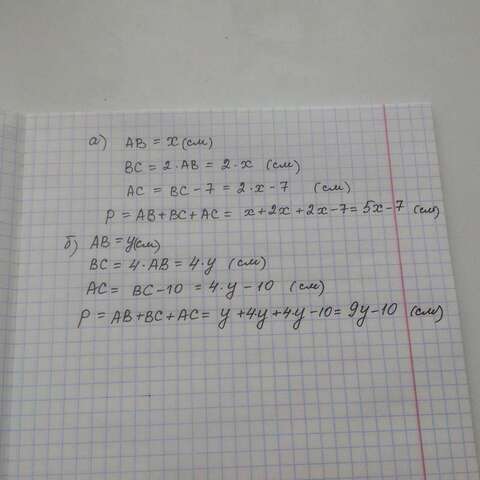 а) AB = x (см)
BC = 2·AB = 2·x (см)
AC = BC - 7 = 2·x - 7 (см)
P = AB + BC + AC = x + 2x + 2x - 7 = 5x - 7 (см)
б) AB = y (см)
BC = 4·AB = 4·y (см)
AC = BC - 10 = 4·y - 10 (см)
P = AB + BC + AC = y + 4y + 4·y - 10 = 9y - 10 (см)